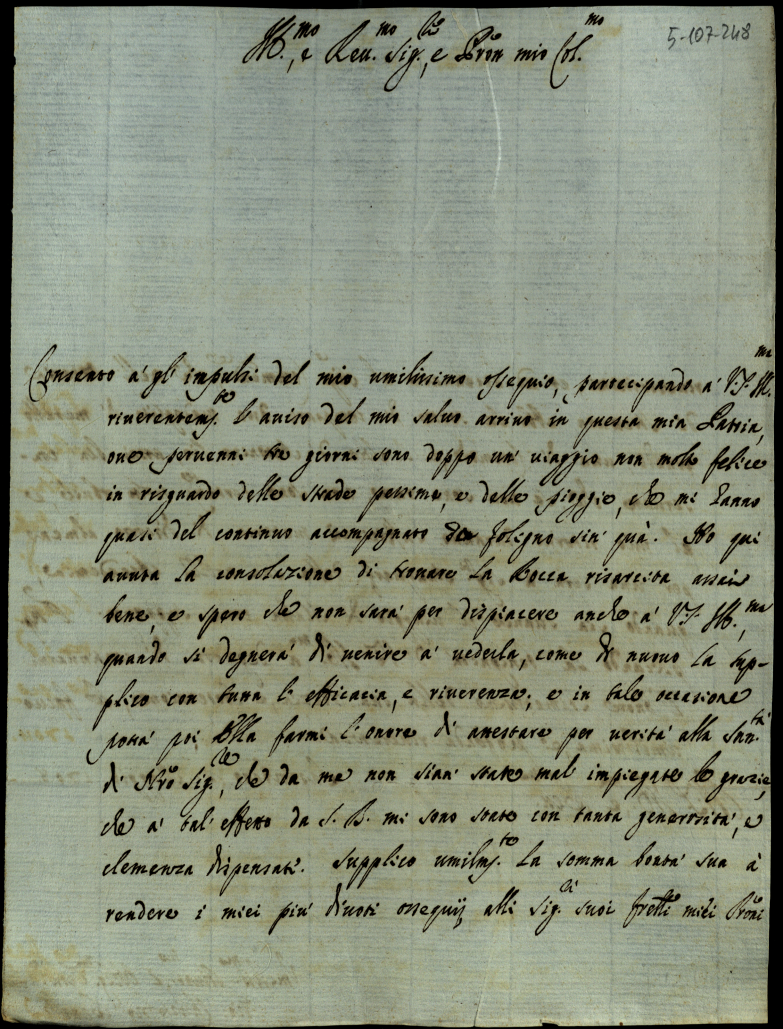 5-107-248
Ill.mo, e Reu.mo Sig.re, e Pron mio Col.mo
Consento á gl' impulsi del mio umilissimo ossequio, partecipando á V.S. Ill.ma
riuerentem.te l' auiso del mio saluo arriuo in questa mia Patria,
oue peruenni tre giorni sono doppo un' uiaggio non molto felice
in risguardo delle strade pessime, e delle pioggie, che mi hanno
quasi del continuo accompagnato da foligno sin' quà. Ho qui
auuta la consolazione di trouare la Rocca risarcita assai
bene, e spero che non sará per dispiacere anche á V.S. Ill.ma,
quando si degnerá di uenire á uederla, come di nuouo la sup-
plico con tutta l' efficacia, e riuerenza; e in tale occasione
potrá poi Ella farmi l' onore di attestare per uerità alla San.tá
di Nro Sig.re, che da me non sian' state mal' impiegate le grazie,
che á tal' effetto da S. B. mi sono state con tanta generositá, e
clemenza dispensati. Supplico umilm.te la somma bontá sua á
rendere i miei piú diuoti ossequij alli Sig.ri suoi frelli miei Proni